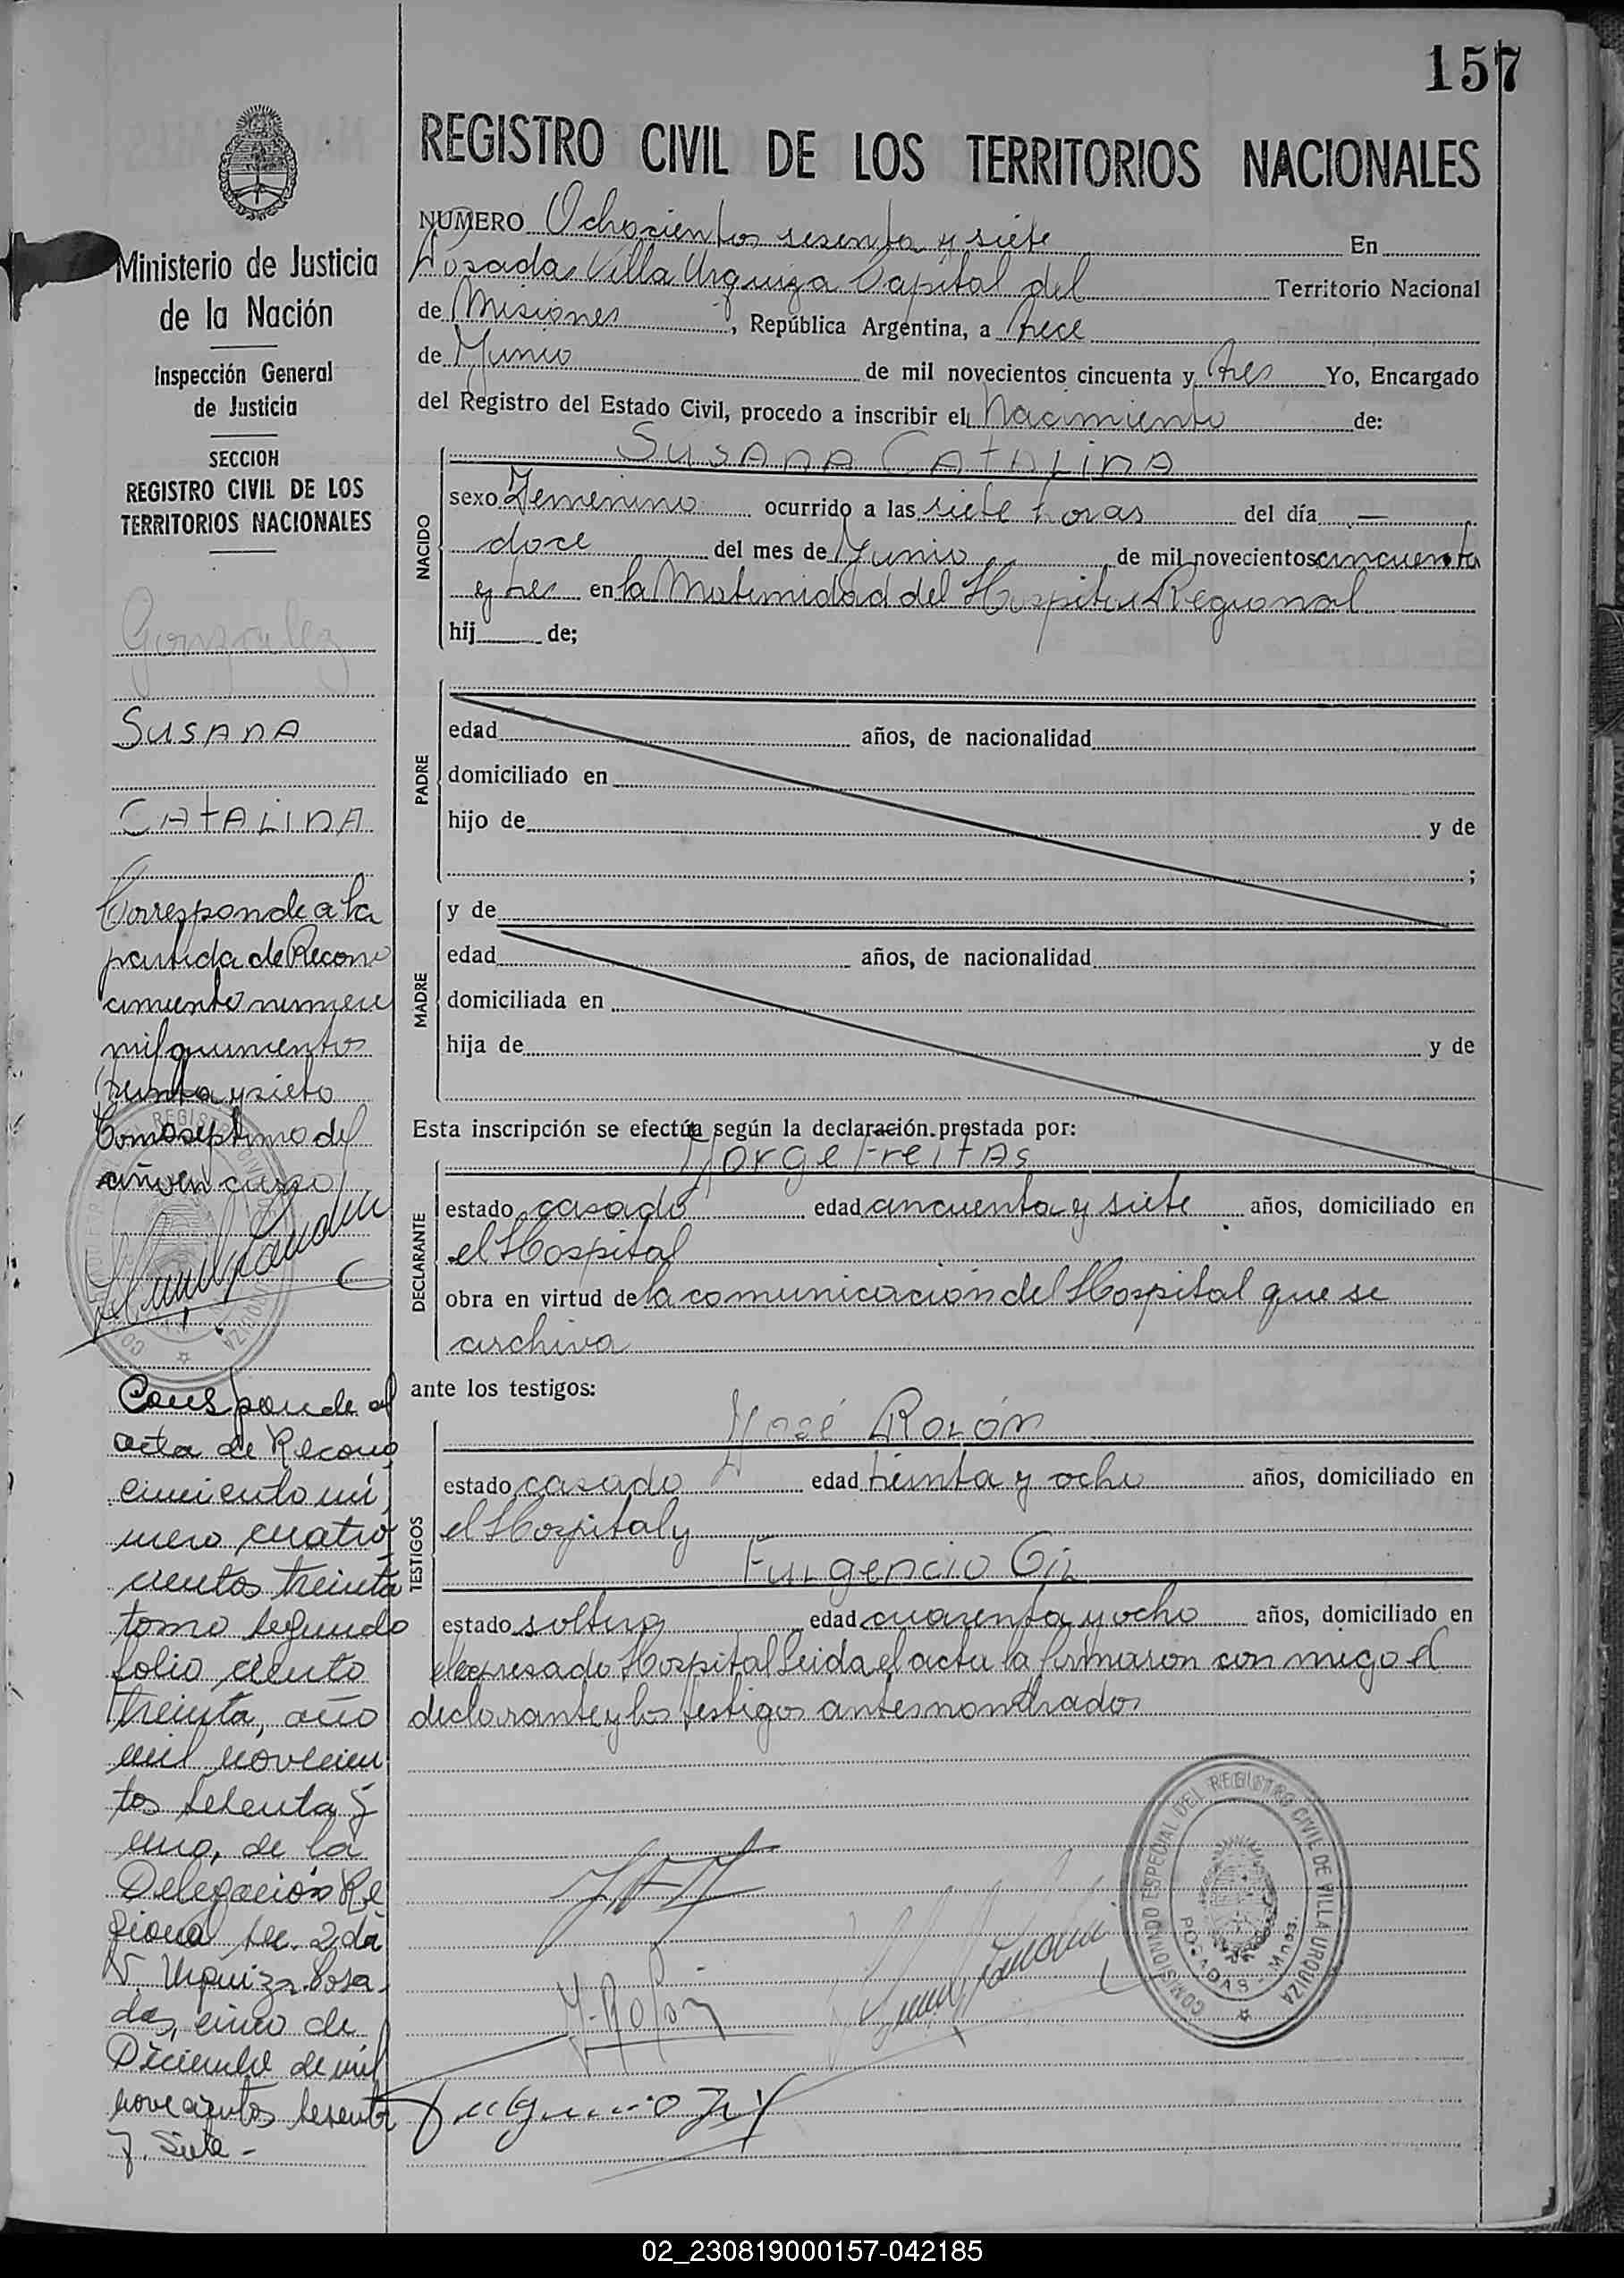 157
REGISTRO CIVIL DE LOS TERRITORIOS NACIONALES
Ministerio de Justicia
de la Nación
Inspección General
de Justicia
SECCION
REGISTRO CIVIL DE LOS
TERRITORIOS NACIONALES
Gonzalez
SUSANA
CATALINA
Corresponde a la
partida de Recono
cimiento numero
mil quinientos
treinta y siete
Tomo septimo del
año en curso
Corresponde al
acta de Recono
cimiento nú
mero cuatro
cientos treinta
tomo segundo
folio ciento
treinta, año
mil novecien
tos sesenta y
uno, de la
Delegación Re
gional sec. 2da
V. Urquiza Posa
das, cinco de
Diciembre de mil
novecientos sesenta
y Siete -
NUMERO Ochocientos sesenta y siete En
Posadas Villa Urquiza Capital del Territorio Nacional
de Misiones, República Argentina, a trece
de Junio de mil novecientos cincuenta y tres Yo, Encargado
del Registro del Estado Civil, procedo a inscribir el Nacimiento de:
NACIDO
SUSANA CATALINA
sexo Femenino ocurrido a las siete horas del día —
doce del mes de Junio de mil novecientos cincuenta
y tres en la Maternidad del Hospital Regional
hij de;
PADRE
edad años, de nacionalidad
domiciliado en
hijo de y de
;
MADRE
y de
edad años, de nacionalidad
domiciliada en
hija de y de
Esta inscripción se efectúa según la declaración prestada por:
DECLARANTE
Jorge Freitas
estado casado edad cincuenta y siete años, domiciliado en
el Hospital
obra en virtud de la comunicación del Hospital que se
archiva
ante los testigos:
TESTIGOS
José Rolón
estado casado edad treinta y ocho años, domiciliado en
el Hospital y
Fulgencio Gil
estado soltero edad cuarenta y ocho años, domiciliado en
el expresado Hospital Leida el acta la firmaron con migo el
declarante y los testigos antes nombrados
J. Rolón
Fulgencio Gil
COMISIONADO ESPECIAL DEL REGISTRO CIVIL DE VILLA URQUIZA
POSADAS - Mnes.
02_230819000157-042185